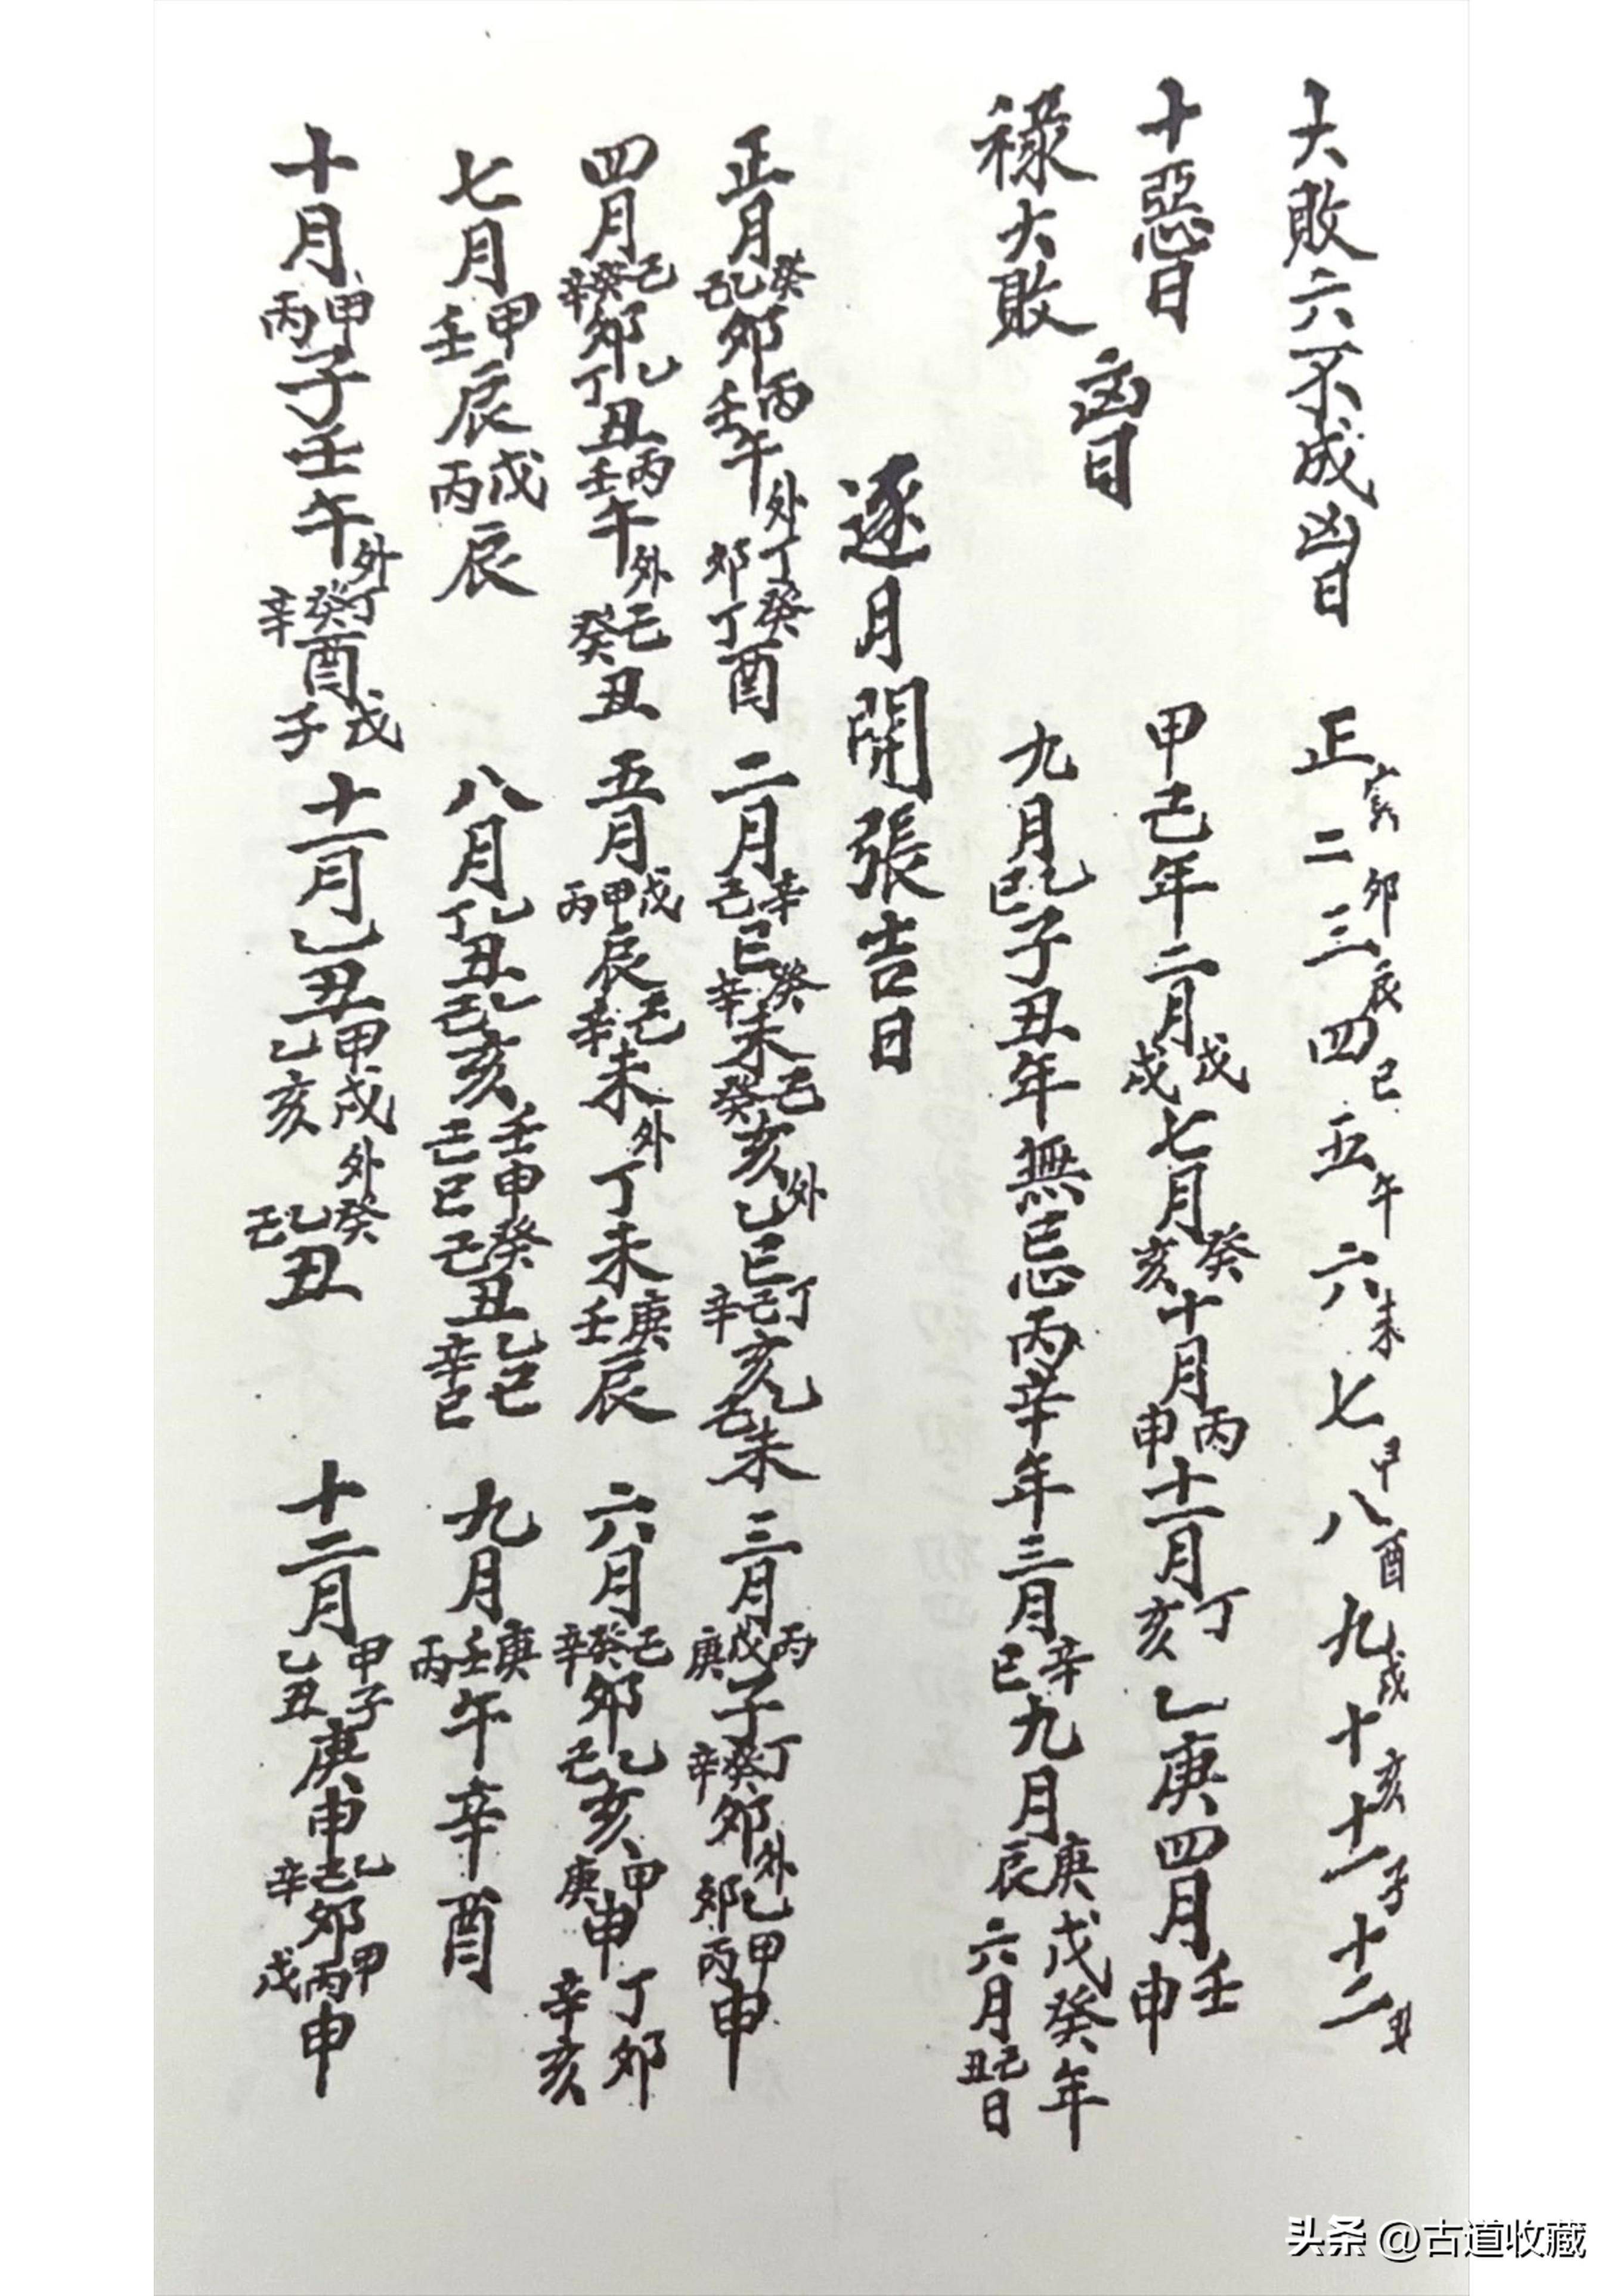 大敗六不成凶日 正寅二卯三辰四巳五午六未七申八酉九戌十亥十一子十二丑
十惡日 甲己年二月戊戌七月癸亥十月丙申十一月丁亥乙庚四月壬申
祿大敗 九月乙巳子丑年無忌丙辛年三月辛巳九月庚辰戊癸年六月己丑日
凶日
逐月開張吉日
正月癸乙己卯丙壬午外丁卯癸丁酉 二月辛己巳癸辛未己癸亥外乙巳丁己辛亥乙己未 三月丙戊庚子丁癸辛卯外乙卯甲丙申
四月己癸辛卯乙丁丑丙壬午外己癸丑 五月戊甲丙辰己辛未外丁未庚壬辰 六月己癸辛卯乙己亥甲庚申丁卯辛亥
七月甲壬辰戊丙辰 八月乙丁丑乙己亥壬申己巳癸己丑乙巳辛巳 九月庚壬丙午辛酉
十月甲丙子壬午外丁癸辛酉戊子 十一月乙丑甲戌乙亥外癸乙己丑 十二月甲子乙丑庚申乙己辛卯甲丙戊申
头条 @古道收藏